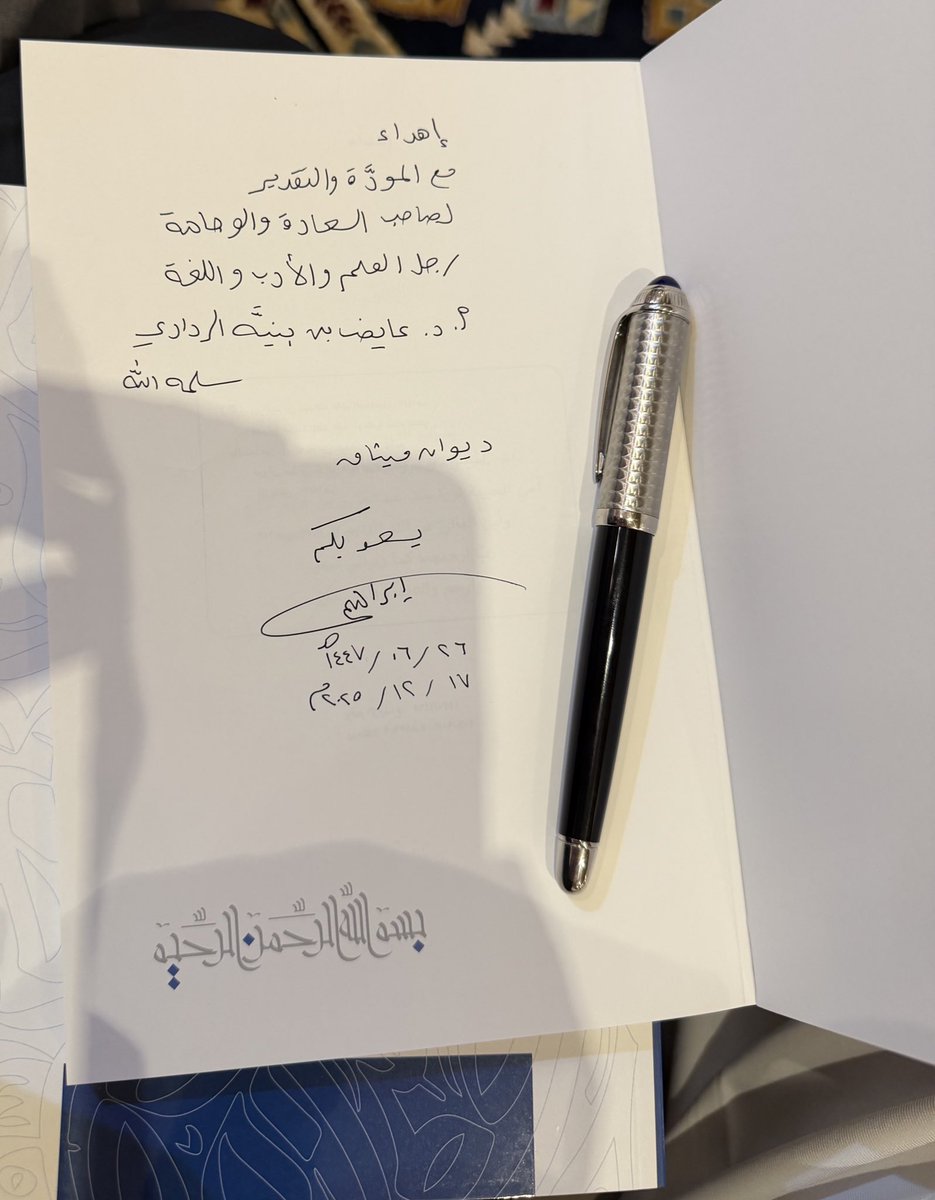 إهداء
مع المودَّة والتقدير
لصاحب السعادة والوجاهة
رجل العلم والأدب واللغة
أ. د. عايض بن بنيَّه الردادي
سلمه الله
ديوان ميثاق
يسعد بكم
إبراهيم
٢٦ / ٠٦ / ١٤٤٧هـ
١٧ / ١٢ / ٢٠٢٥م
بسم الله الرحمن الرحيم